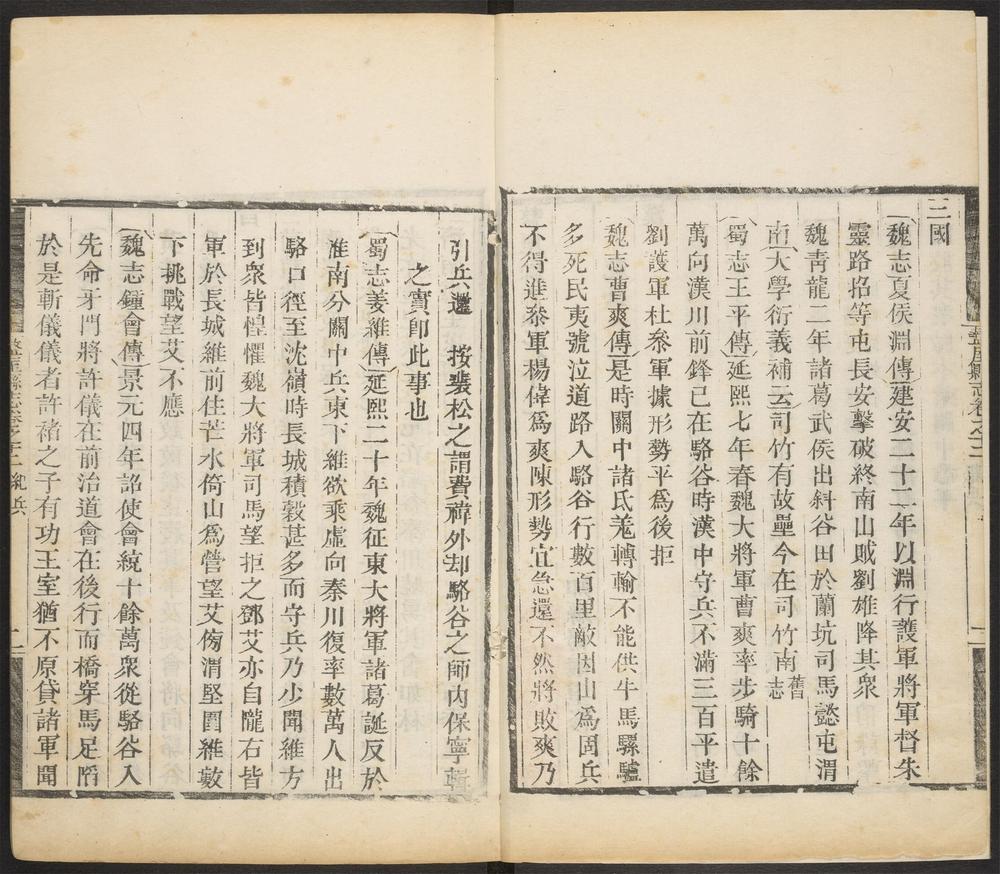 三國
魏志夏侯淵傳建安二十二年以淵行護軍將軍督朱
靈路招等屯長安擊破終南山賊劉雄降其衆
魏青龍二年諸葛武侯出斜谷田於蘭坑司馬懿屯渭
南大學衍義補云司竹有故壘今在司竹南舊志
蜀志王平傳延熙七年春魏大將軍曹爽率步騎十餘
萬向漢川前鋒已在駱谷時漢中守兵不滿三百平遣
劉護軍杜叅軍據形勢平爲後拒
魏志曹爽傳是時關中諸氐羌轉輸不能供牛馬騾驢
多死民夷號泣道路入駱谷行數百里敵因山爲固兵
不得進叅軍楊偉爲爽陳形勢宜急還不然將敗爽乃
盩厔縣志卷之十二
引兵還 按裴松之謂費禕外却駱谷之師內保寧輯
之實卽此事也
蜀志姜維傳延熙二十年魏征東大將軍諸葛誕反於
淮南分關中兵東下維欲乘虛向秦川復率數萬人出
駱口徑至沈嶺時長城積穀甚多而守兵乃少聞維方
到衆皆惶懼魏大將軍司馬望拒之鄧艾亦自隴右皆
軍於長城維前住芒水倚山爲營望艾傍渭堅圍維數
下挑戰望艾不應
魏志鍾會傳景元四年詔使會統十餘萬衆從駱谷入
先命牙門將許儀在前治道會在後行而橋穿馬足陷
於是斬儀儀者許褚之子有功王室猶不原貸諸軍聞
盩厔縣志卷之十二 紀兵 二